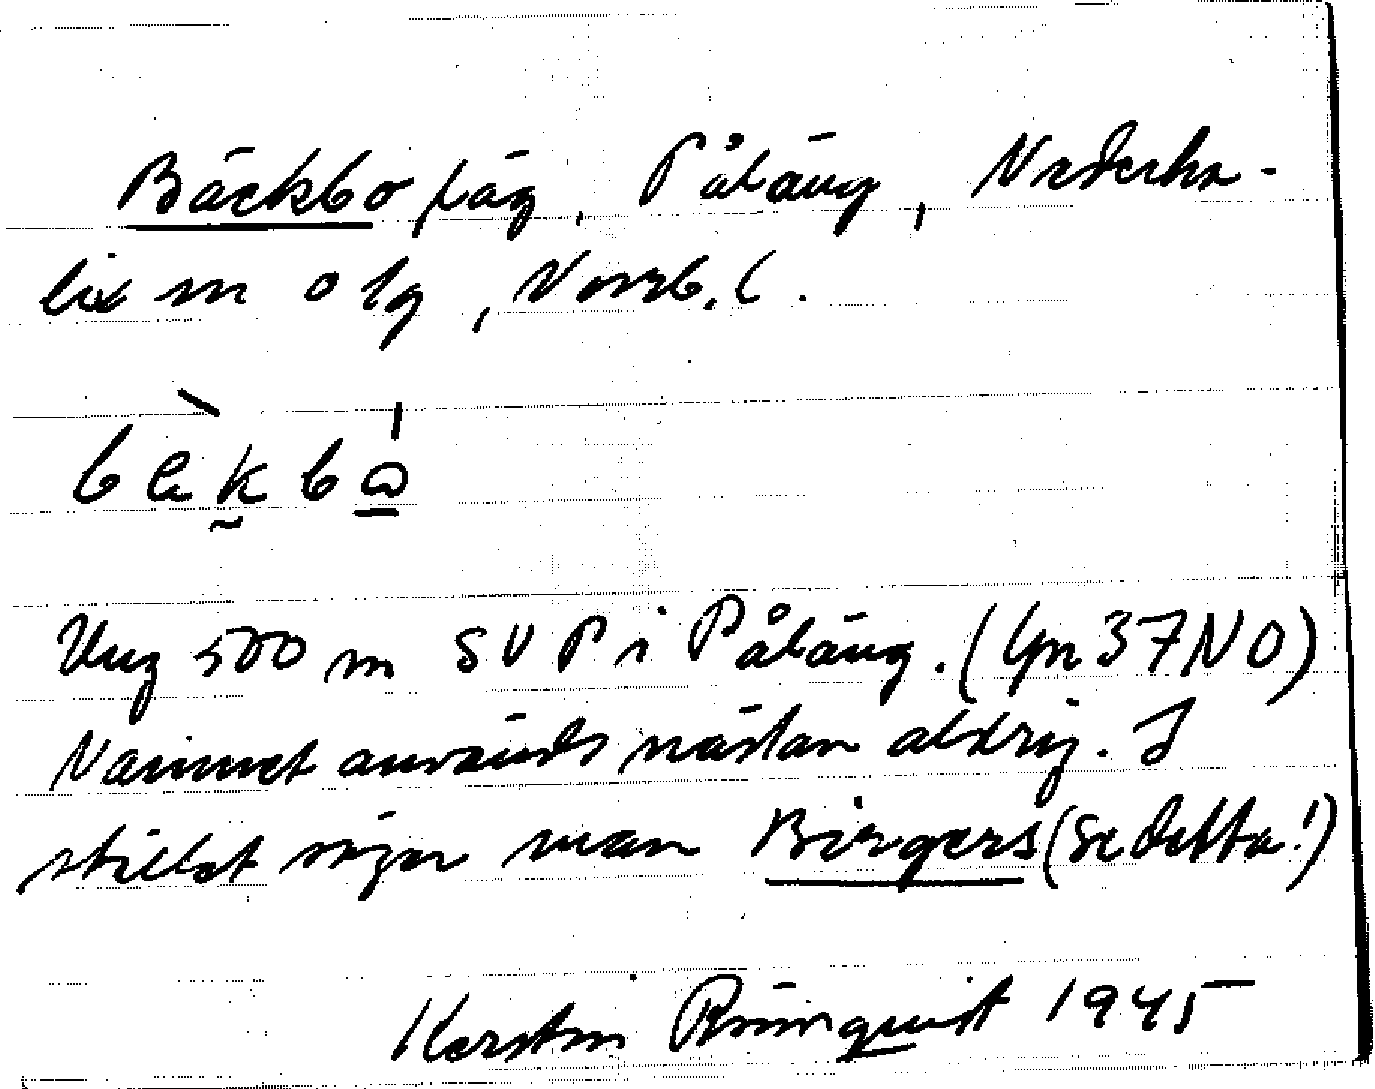 Bäckbo läg, Påläng, Nederka-
lix sn o lg, Norrb. l.
bäkbo
Ung 500 m SV P i Påläng. (Gpn 37 NO)
Namnet används nästan aldrig. I
stället säger man Birgers (se detta!)
Kerstin 1945